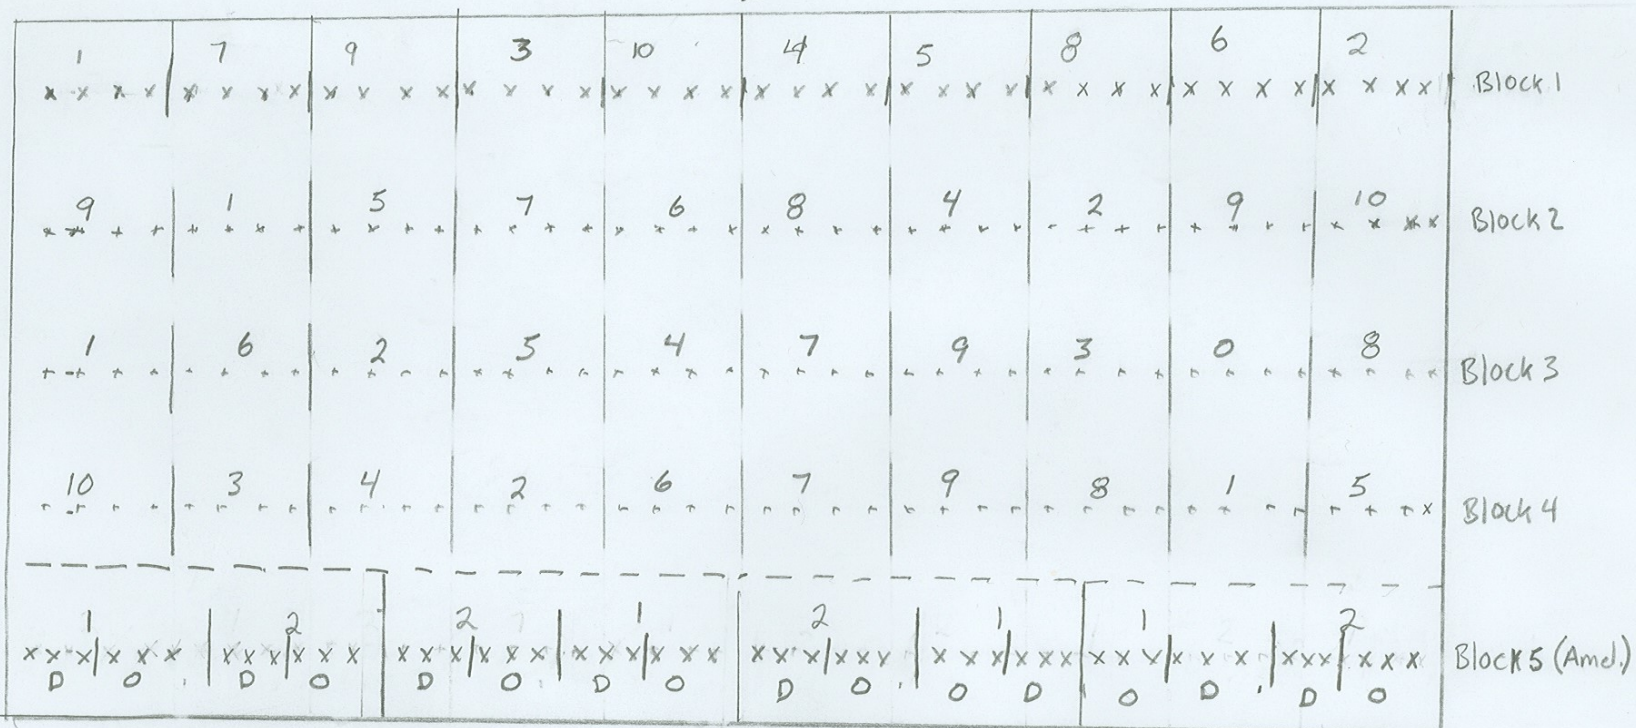 1 7 9 3 10 4 5 8 6 2
x x x x x x x x x x x x x x x x x x x x x x x x x x x x x x x x x x x x x x x x Block 1
9 1 5 7 6 8 4 2 9 10 Block 2
1 6 2 5 4 7 9 3 0 8 Block 3
10 3 4 2 6 7 9 8 1 5 Block 4
1 2 2 1 2 1 1 2
x x x x x x x x x x x x x x x x x x x x x x x x x x x x x x x x x x x x x x x x x x x x x x x x Block 5 (Amd.)
D O D O D O D O D O O D O D D O